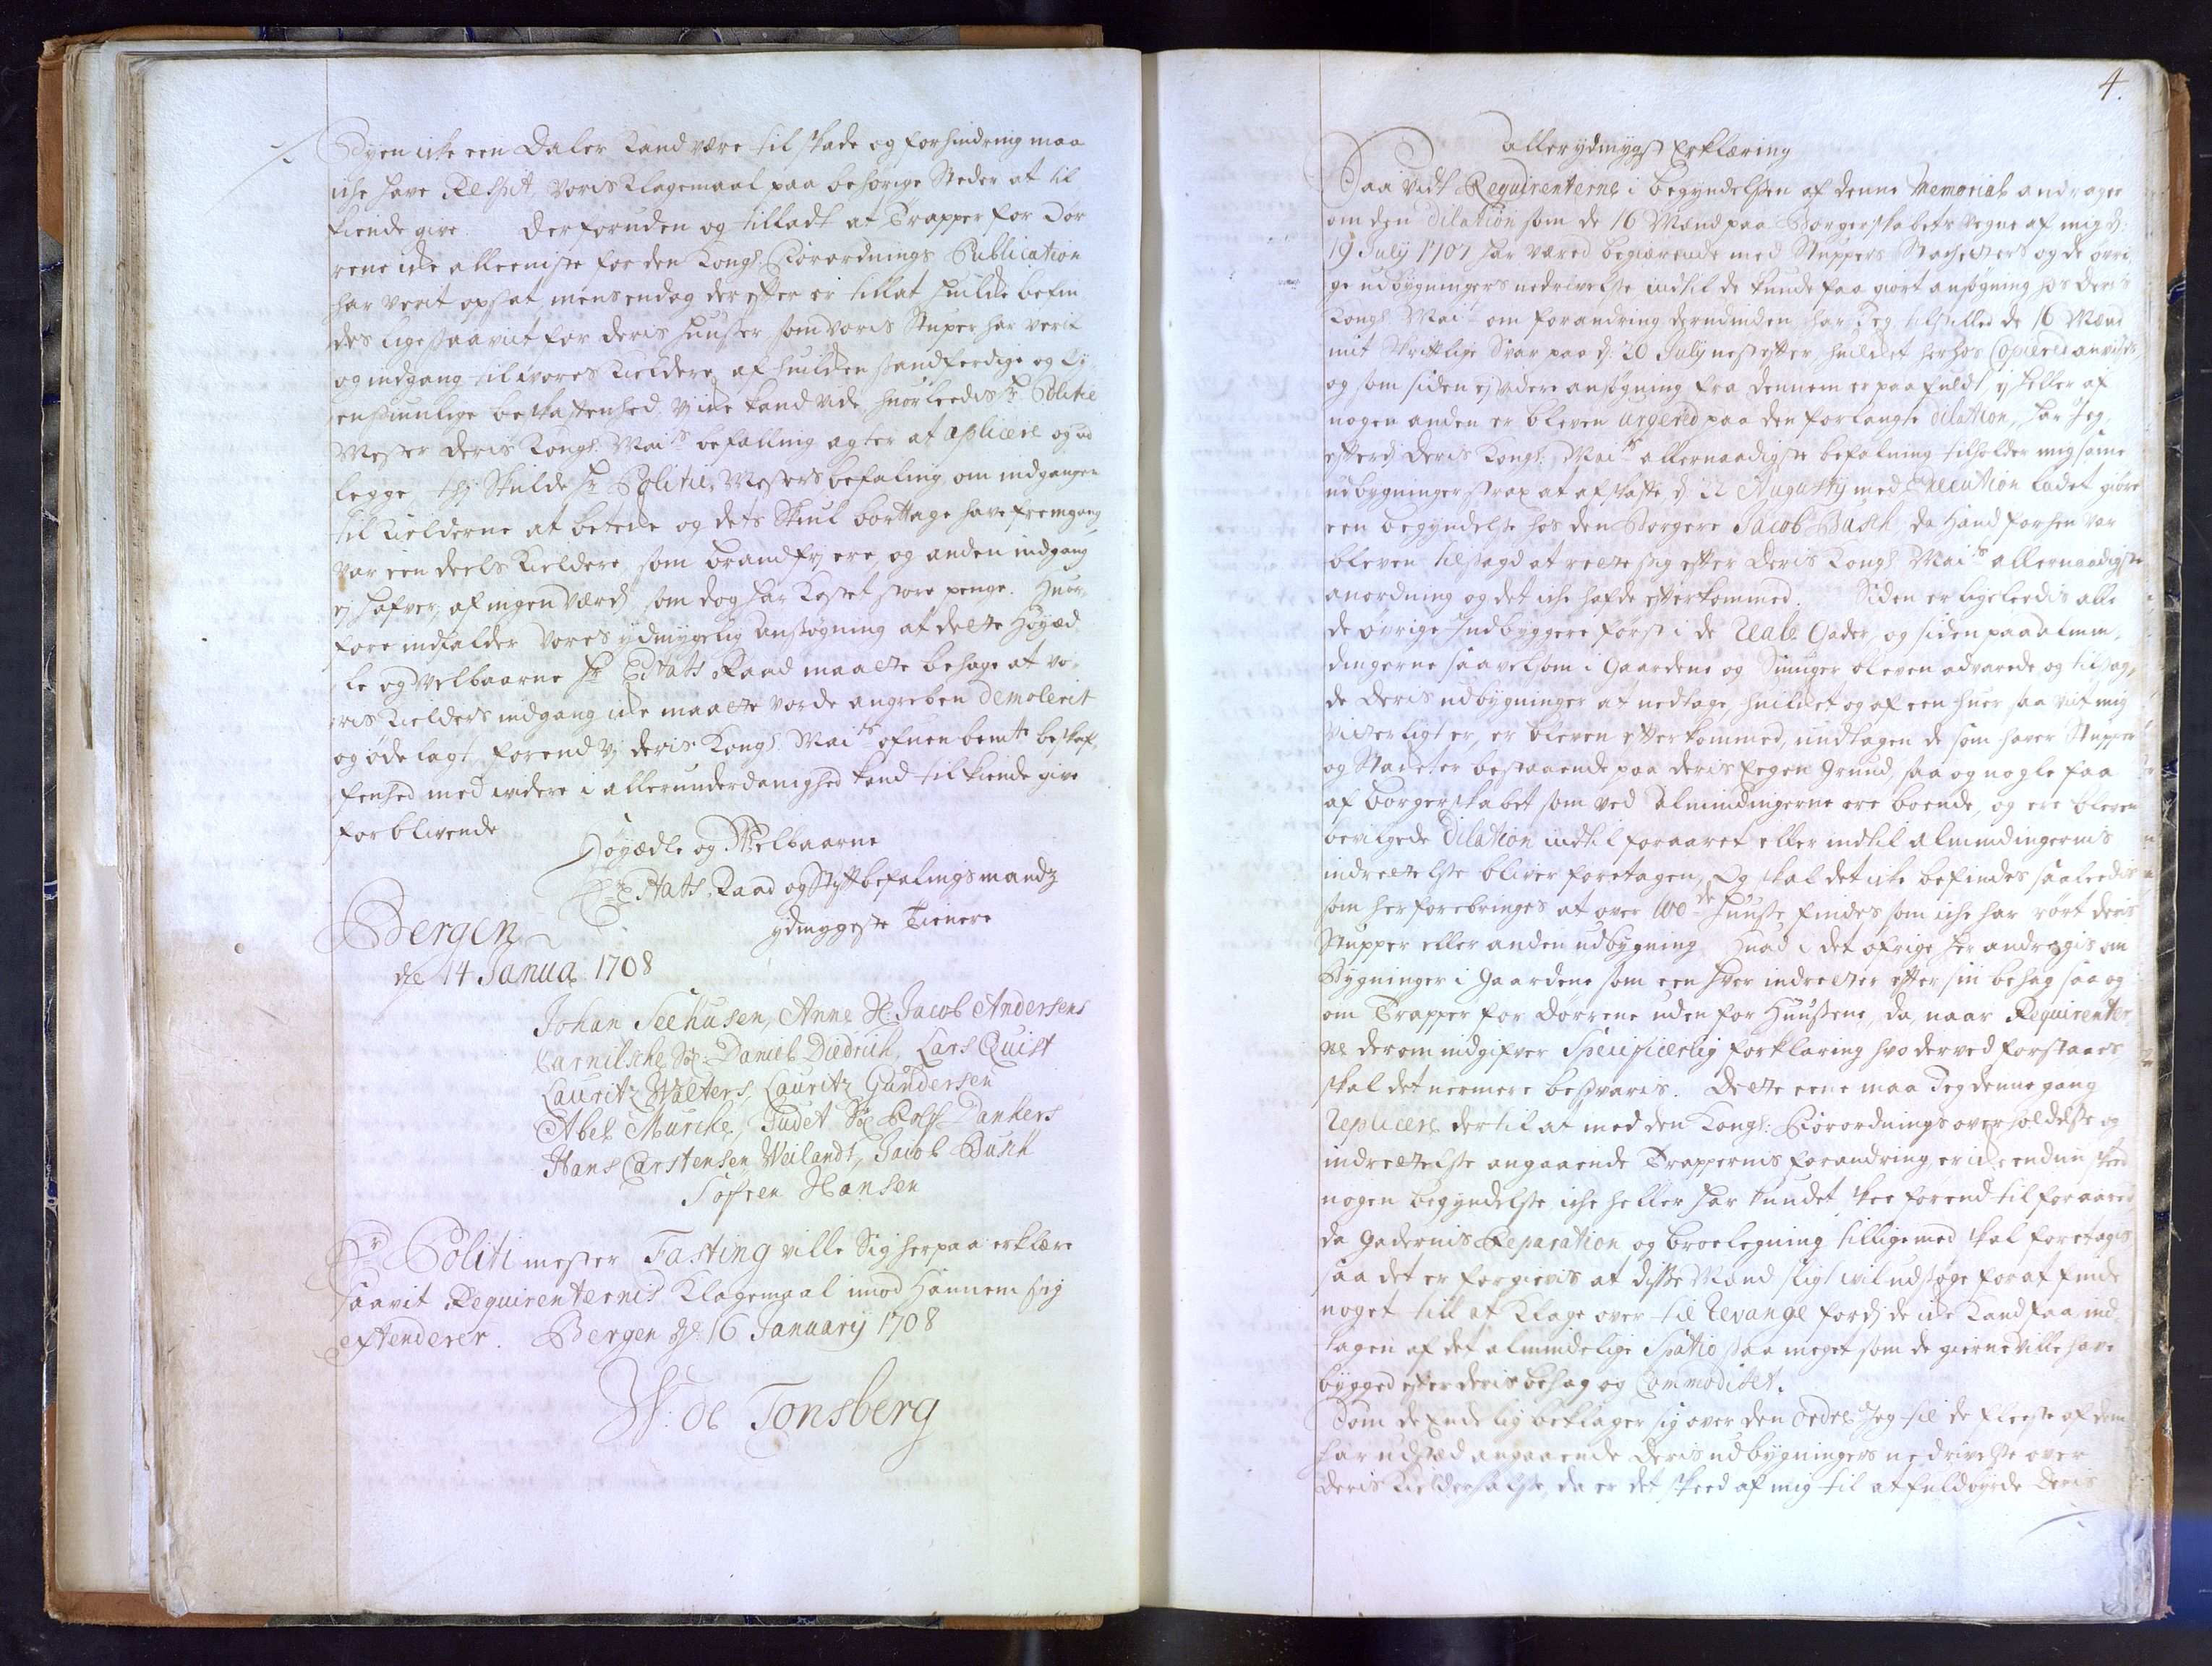 Byen icke een Daler kand være til skade og forhindring maa
iche have Respit, voris klagemaal paa behørige Steder at til
kiende give. Derforuden og tilladt at Trapper for Dør
rene icke alleeniste for den Kongl: Forordnings Publication
har verit opsat, mens endog der efter er tillat huilke befin
des ligesaavit for deris Huuser som voris Stuper har verit
og indgang til vores Kieldere, af huilken
beskaffenhed vi icke kand vide, huorledis Hr. Politie
Mester deris Kongl: Maits befalling agter at aplicere og ud
legge, thj skulde Hr Politie Mesters befaling om indgangen
til Kielderne at betene og dets Skiul borttage have fremgang
var een deels Kieldere, som brandfrj ere, og anden indgang
ej hafver, af ingen værd, som dog har kostet store penge. Huor
fore indfalder vores ydmygelig ansøgning at dette Høyæd
le og Velbaarne Hr Etats Raad maatte behage at vo
ris Kielders indgang icke maatte vorde angreben demolerit
og ødelagt, forend vj deris Kongl: Maits ofuenbemte beskaf
fenhed med videre i allerunderdanighed kand tilkiende give
forblivende
Høyædle og Velbaarne
Hr Etats Raad og Stiftbefalingsmandz
ydmygeste Tienere
Bergen
de 14 Janua. 1708
Johan Seehusen, Anne Sl: Jacob Andersens
Carnilsche Sl: Daniel Diedrich, Lars Quist
Lauritz Walters, Lauritz Gundersen
Abel Murcke, Judet Sl: Rolf Dankers
Hans Carstensen Weilandt, Jacob Busch
Søfren Hansen
Hr Politi mester Fasting ville Sig herpaa erklære
saavit Requirenternis Klagemaal imod Hannem sig
extenderer. Bergen de: 16 January 1708
W: de Tonsberg
4.
allerydmygst Erklæring
Saa vidt Requirenterne i begyndelsen af denne Memorial andrager
om den dilation som de 16 Mænd paa Borgerskabets vegne af mig d:
19 July 1707 har været begiærende med Stuppers og de øvri
ge udbygningers nedrivelse indtil de kunde faa giort ansøgning hos deris
Kongl: Maits om forandring derudinden, har Jeg tilstilled de 16 Mænd
mit Skriftlige Svar paa d: 20 July nest efter, huilcket herhos Copiered anvises
og som siden ej videre ansøgning fra dennem er paafuldt, ej heller af
nogen anden er bleven urgered paa den forlangte dilation, har Jeg
efterdj deris Kongl: Maits allernaadigste befalning tilholder mig same
udbygninger strax at afskaffe, d: 22 Augusty med Execution ladet giøre
een begyndelse hos den Borgere Jacob Busch, da hand forhen var
bleven tilsagd at rette sig efter deris Kongl: Maits allernaadigste
anordning og det iche hafde efterkommed. Siden er ligeleedis alle
de øvrige Indbyggere først i de reale Gader, og siden paa almin
dingerne saavelsom i Gaardene og Smuger bleven advarede og tilsag
de deris udbygninger at nedtage, huilcket og af een huer, saa vit mig
vitterligt er, er bleven efterkommed, undtagen de som haver Stupper
og bestaaende paa deris egen Grund, saa og nogle faa
af borgerskabet som ved alminding­erne ere boende, og ere bleven
bevilgede dilation indtil foraaret eller indtil almindingernis
indrettelse bliver foretagen, Og skal det icke befindes saaleedis
som her forebringes at over 100de Huuse findes som iche har rørt deris
Stupper eller anden udbygning. Huad i det øfrige her andragis om
Bygninger i Gaardene som een hver indretter efter sin behag saa og
om Trapper for Dørrene uden for Huusene, da, naar Requirenter
ne derom indgifver Specificerlig forklaring hvo derved forstaaes
skal det nærmere besvaris. Dette eene maa Jeg denne gang
replicere dertil at med den Kongl: Forordnings overholdelse og
indrettelse angaaende Trappernis forandring, er icke endnu skeed
nogen begyndelse iche heller har kundet skee forend til foraaret
da Gadernis Reparation og broelegning tilligemed skal foretagis
saa det er forgievis at disse Mænd sligt vil udsøge for at finde
noget till at klage over til revange fordj de icke kand faa ind
tagen af det almindelige Spatio saa meget som de gierne ville have
bygged efter deris behag og Commoditet.
Som de Endelig beklager sig over den ordre Jeg til de fleeste af dem
har udsted angaaende deris udbygningers nedrivelse over
deris Kielderhalse, da er det skeed af mig til at fuldbyrde deris